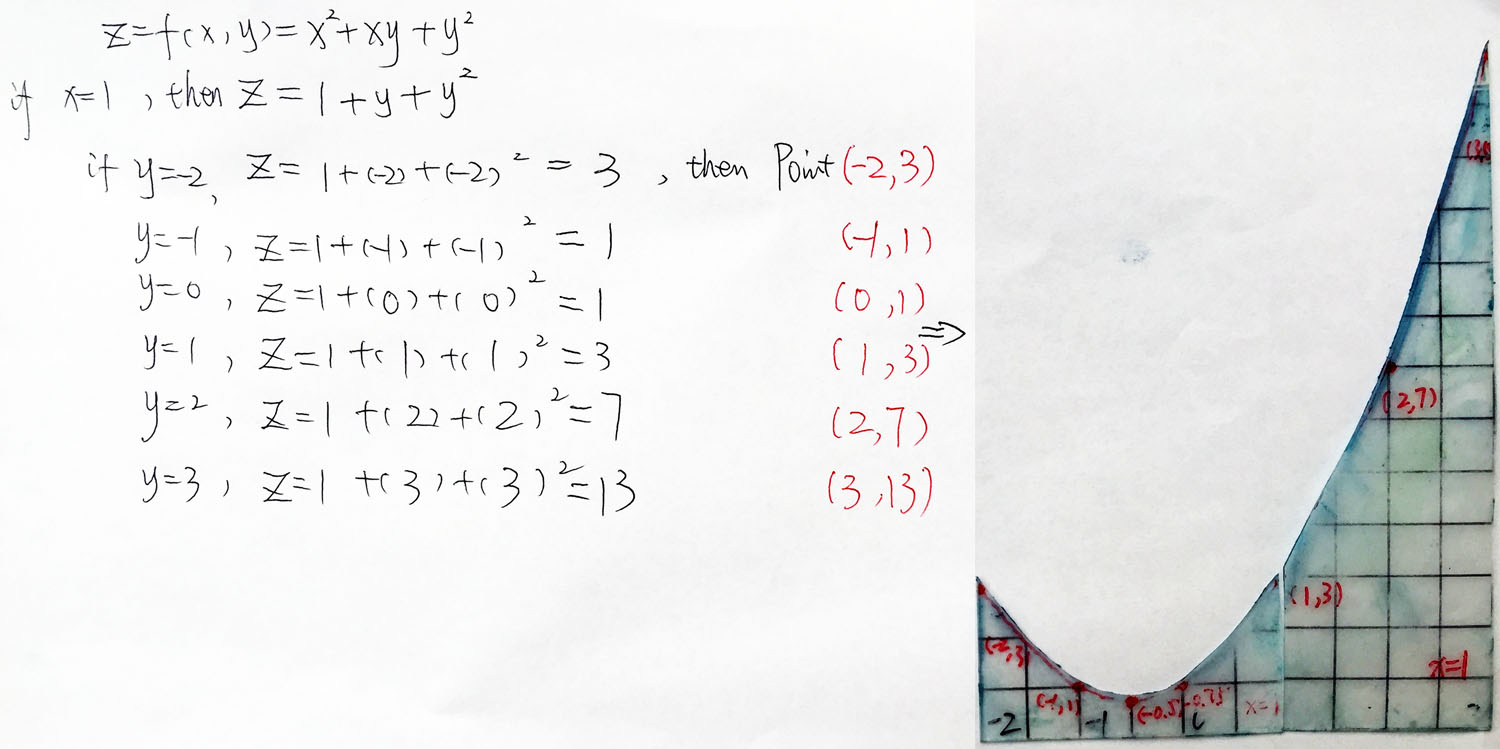 z=f(x,y)=x²+xy+y²
if x=1, then z=1+y+y²
if y=-2, z=1+(-2)+(-2)²=3, then Point (-2,3)
y=-1, z=1+(-1)+(-1)²=1 (-1,1)
y=0, z=1+(0)+(0)²=1 (0,1)
⇒
y=1, z=1+(1)+(1)²=3 (1,3)
y=2, z=1+(2)+(2)²=7 (2,7)
y=3, z=1+(3)+(3)²=13 (3,13)
(2,7)
(1,3)
(-2,3
x=1
(-1,1)
(-0.5
-0.75
x=1
-2
-1